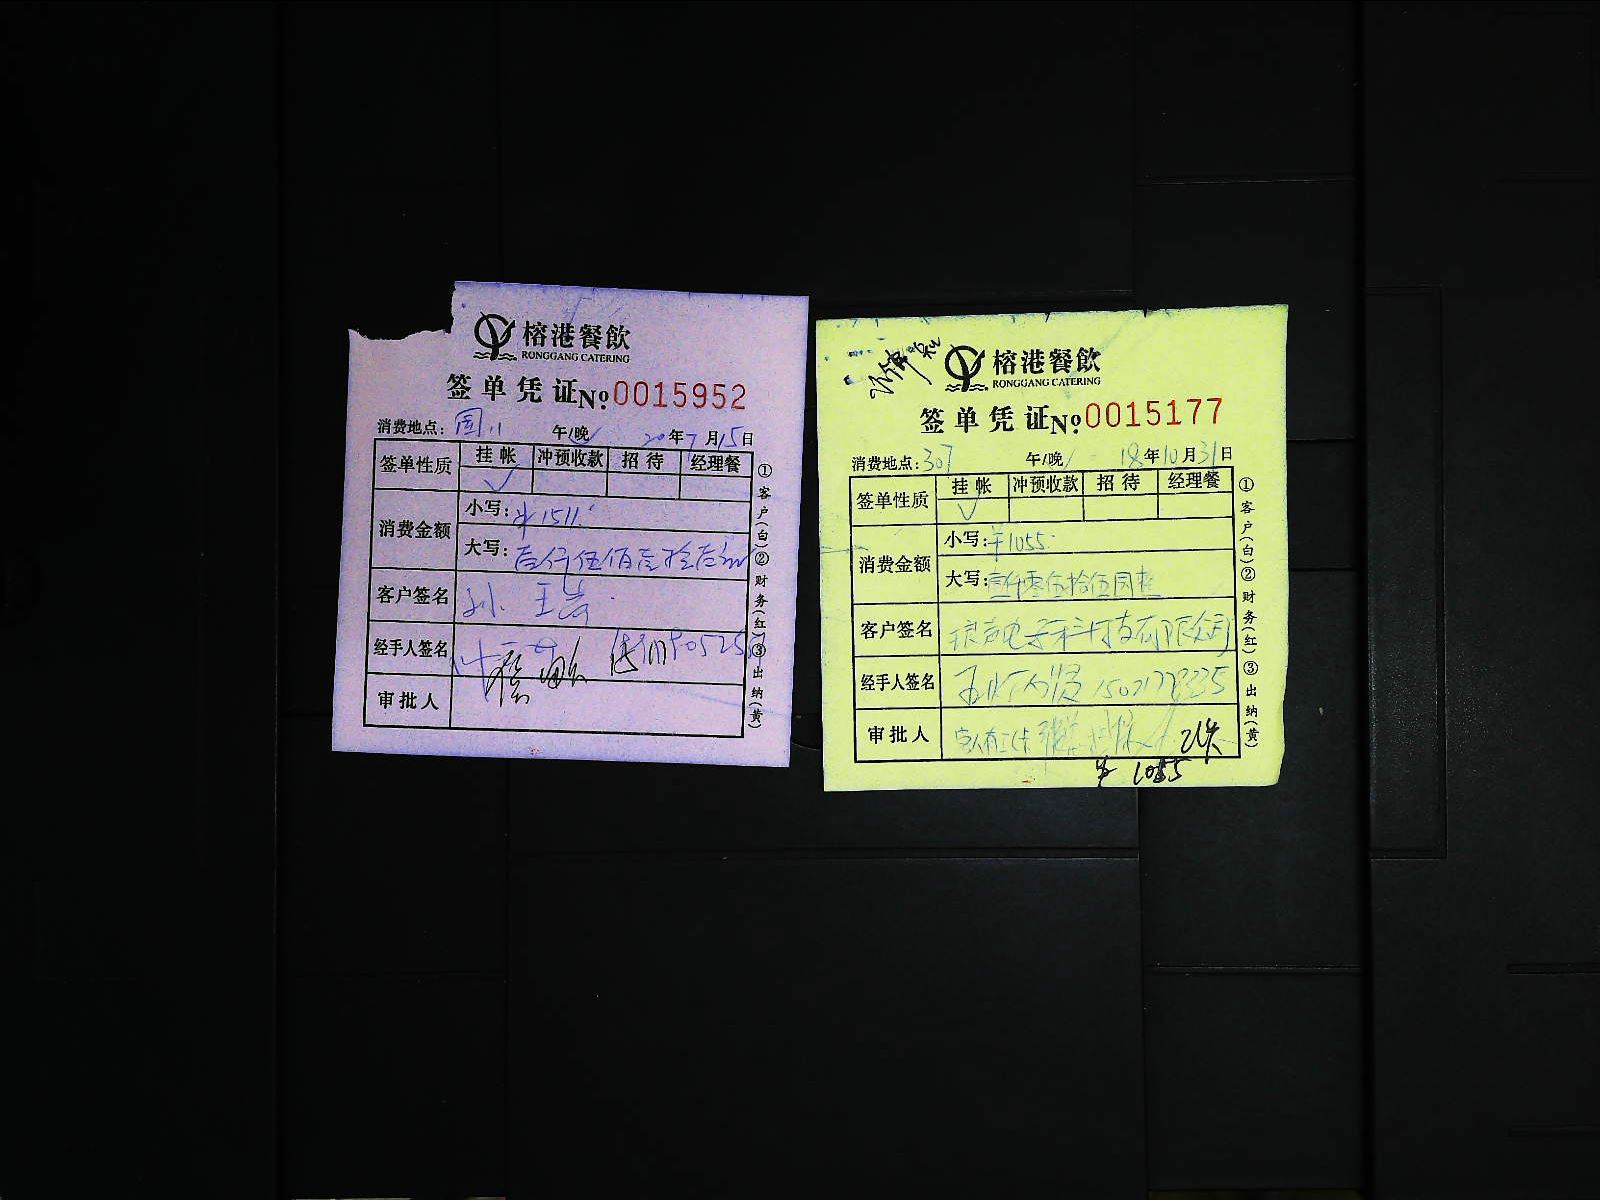 榕港餐飲
RONGGANG CATERING
签单凭证 No. 0015952
消费地点: 午/晚 20年7月15日
签单性质 挂帐 冲预收款 招待 经理餐
消费金额 小写: ¥1511.
大写: 壹仟伍佰壹拾壹元
客户签名 孙
经手人签名
审批人
①客户(白)②财务(红)③出纳(黄)
榕港餐飲
RONGGANG CATERING
签单凭证 No. 0015177
消费地点: 307 午/晚 18年10月31日
签单性质 挂帐 冲预收款 招待 经理餐
消费金额 小写: ¥1055.
大写: 壹仟零伍拾伍园整
客户签名 电子科技有限公司
经手人签名
审批人
¥ 1055
①客户(白)②财务(红)③出纳(黄)